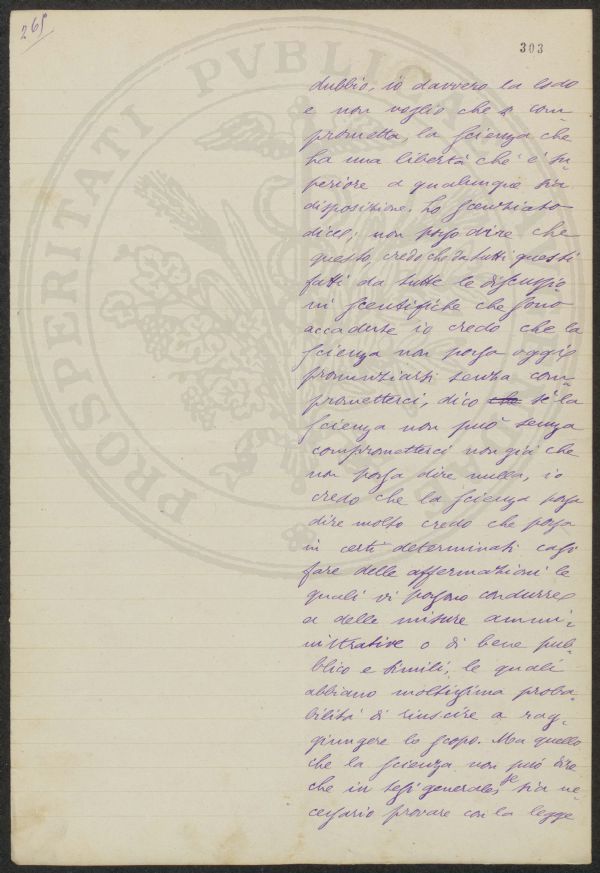 265
303
PROSPERITATI PVBLICAE
dubbio, io davvero la lodo
e non voglio che si com-
prometta, la scienza che
ha una libertà che è su-
periore a qualunque sia
disposizione. Lo scenziato
dice; non posso dire che
questo, credo che da tutti questi
fatti da tutte le discussio-
ni scentifiche che sono
accadute io credo che la
scienza non possa oggi
pronunziarsi senza com-
prometterci, dico che se la
scienza non può senza
comprometterci non già che
non possa dire nulla, io
credo che la scienza possa
dire molto credo che possa
in certi determinati casi
fare delle affermazioni le
quali vi possono condurre
a delle misure ammi-
nistrative o di bene pub-
blico e simili, le quali
abbiano moltissima proba-
bilità di riuscire a rag-
giungere lo scopo. Ma quello
che la scienza non può dire
che in tesi generale, se sia ne-
cessario provare con la legge